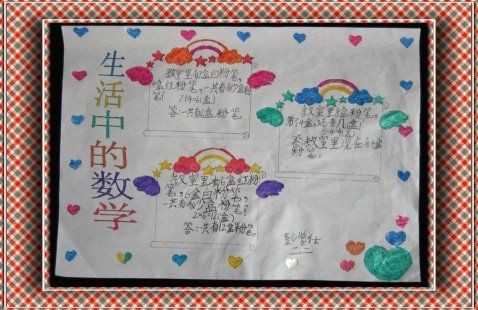 生活中的数学
教室里有2盒白粉笔,
4盒红粉笔,一共有多少盒粉
笔?
2+4=6(盒)
答:一共有6盒粉笔
教室里
盒粉笔,
用了4盒,还有几盒?
答:教室里现在有4盒
粉笔。
教室里有6盒红粉
笔,6盒白粉笔,
一共有多少盒粉笔?
2×6=12(盒)
答:一共有12盒粉笔。
二二